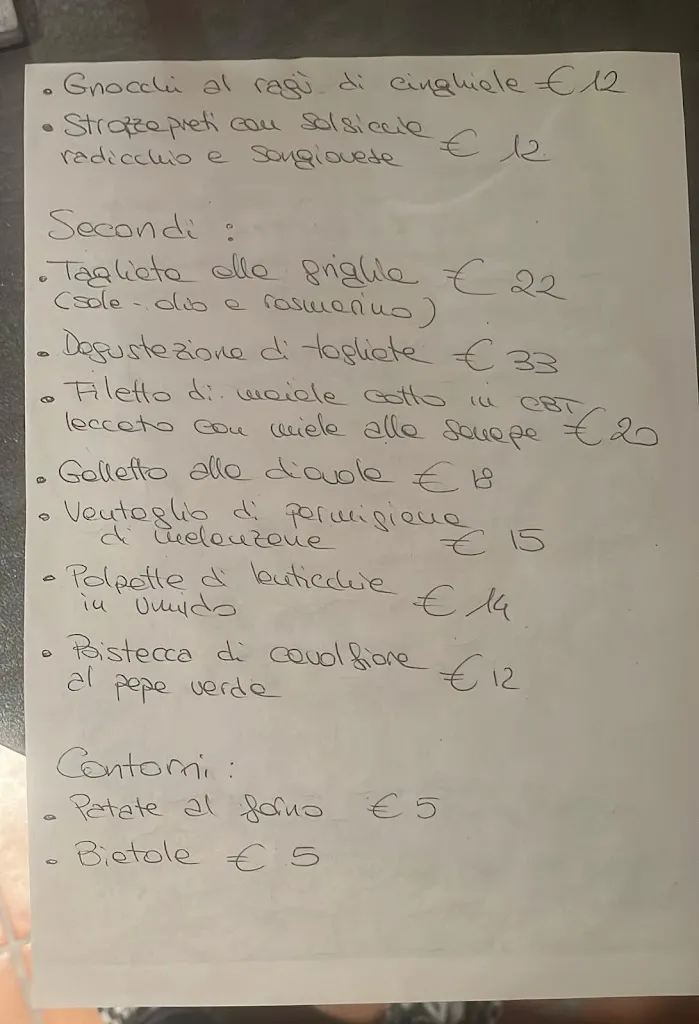 • Gnocchi al ragù di cinghiale € 12
• Strozzapreti con salsiccia
radicchio e sangiovese € 12
Secondi :
• Tagliata alla griglia € 22
(sale - olio e rosmarino)
• Degustazione di tagliata € 33
• Filetto di maiale cotto in CBT
laccato con miele alla senape € 20
• Galletto alla diavola € 18
• Ventaglio di parmigiana
di melanzane € 15
• Polpette di lenticchie
in umido € 14
• Bistecca di cavolfiore
al pepe verde € 12
Contorni :
• Patate al forno € 5
• Bietole € 5